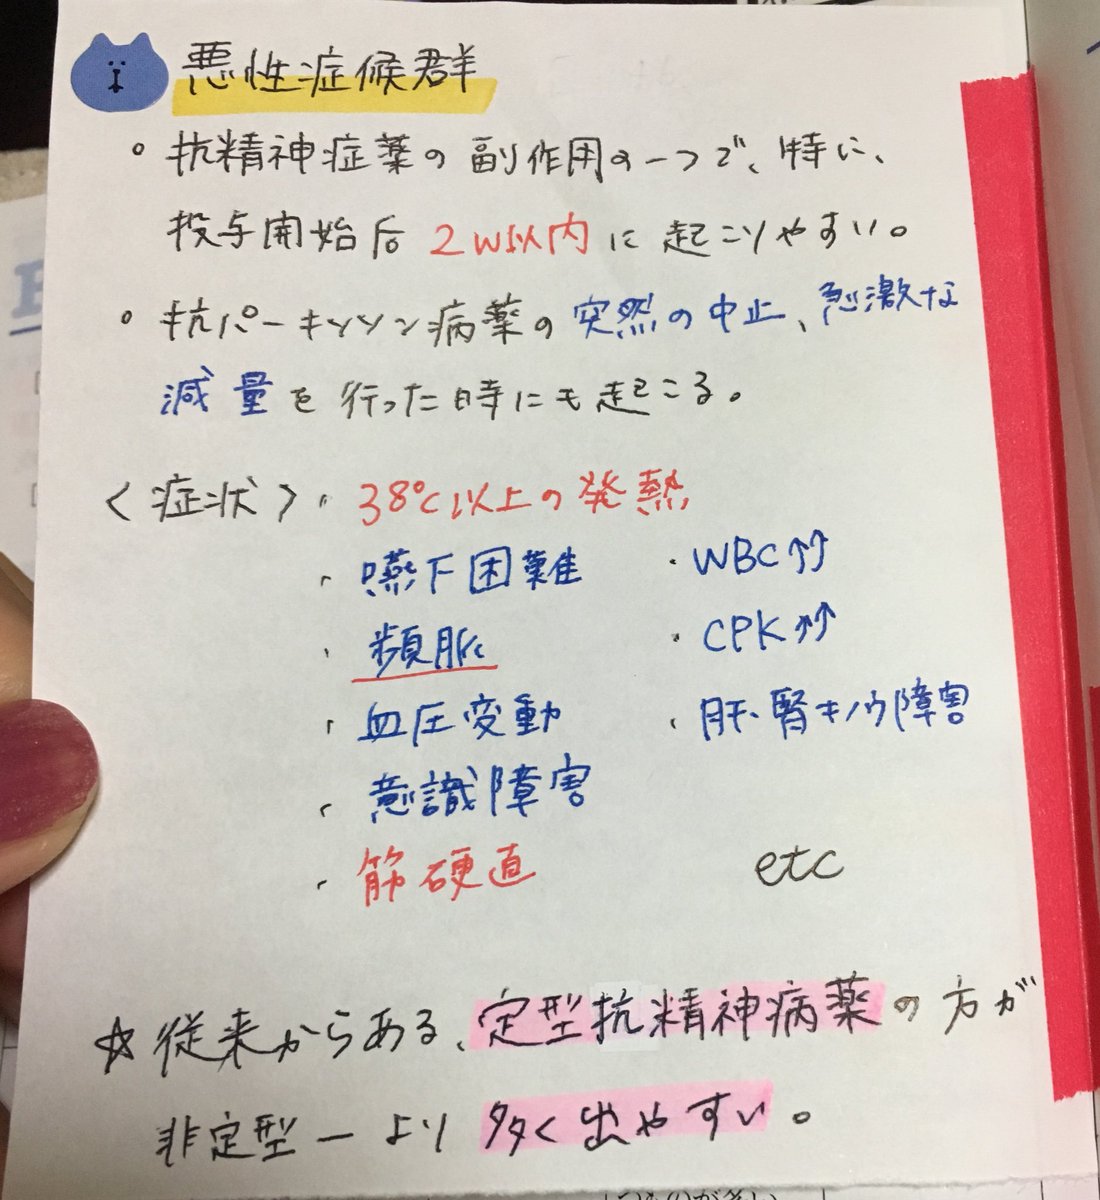 悪性症候群
。抗精神症薬の副作用の一つで、特に、
投与開始后 2W以内に起こりやすい。
。抗パーキンソン病薬の突然の中止、急激な
減量を行った時にも起こる。
〈症状〉・38℃以上の発熱
・嚥下困難 ・WBC↑↑
・頻脈 ・CPK↑↑
・血圧変動 ・肝・腎キノウ障害
・意識障害
・筋硬直 etc
☆従来からある、定型抗精神病薬の方が
非定型ーより多く出やすい。